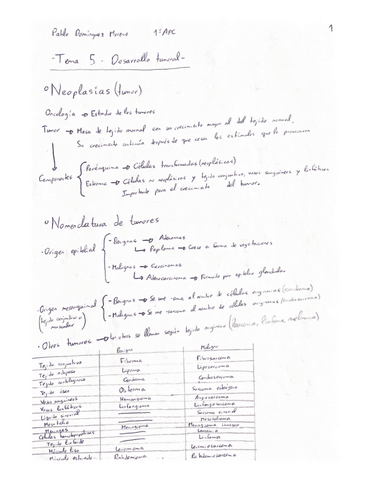 Pablo Dominguez Moreno 1º APC 1
- Tema 5. Desarrollo tumoral -
º Neoplasias (tumor)
Oncología → Estudio de los tumores
Tumor → Masa de tejido anormal con un crecimiento mayor al del tejido normal.
Su crecimiento continúa después de que cesen los estímulos que lo provocaron
Componentes
Parénquima → Células transformadas (neoplásicas)
Estroma → Células no neoplásicas y tejido conjuntivo, vasos sanguíneos y linfáticos
Importante para el crecimiento del tumor.
º Nomenclatura de tumores
· Origen epitelial
- Benignos → Adenomas
Papiloma → Crece a forma de vegetaciones
- Malignos → Carcinomas
Adenocarcinoma → Formado por epitelio glandular
· Origen mesenquimal
(tejido conjuntivo o muscular)
- Benignos → Se une -oma al nombre de células
- Malignos → Se une sarcoma al nombre de células
· Otros tumores → Los otros se llaman según tejido
Benigno Maligno
Tejido conjuntivo Fibroma Fibrosarcoma
Tejido adiposo Lipoma Liposarcoma
Tejido cartilaginoso Condroma Condrosarcoma
Tejido óseo Osteoma Sarcoma osteogénico
Vasos sanguíneos Hemangioma Angiosarcoma
Vasos linfáticos Linfangioma Linfangiosarcoma
Líquido sinovial Sarcoma sinovial
Mesotelio Mesotelioma
Meninges Meningioma Meningioma invasivo
Células hematopoyéticas Leucemia
Tejido linfoide Linfoma
Músculo liso Leiomioma Leiomiosarcoma
Músculo estriado Rabdomioma Rabdomiosarcoma